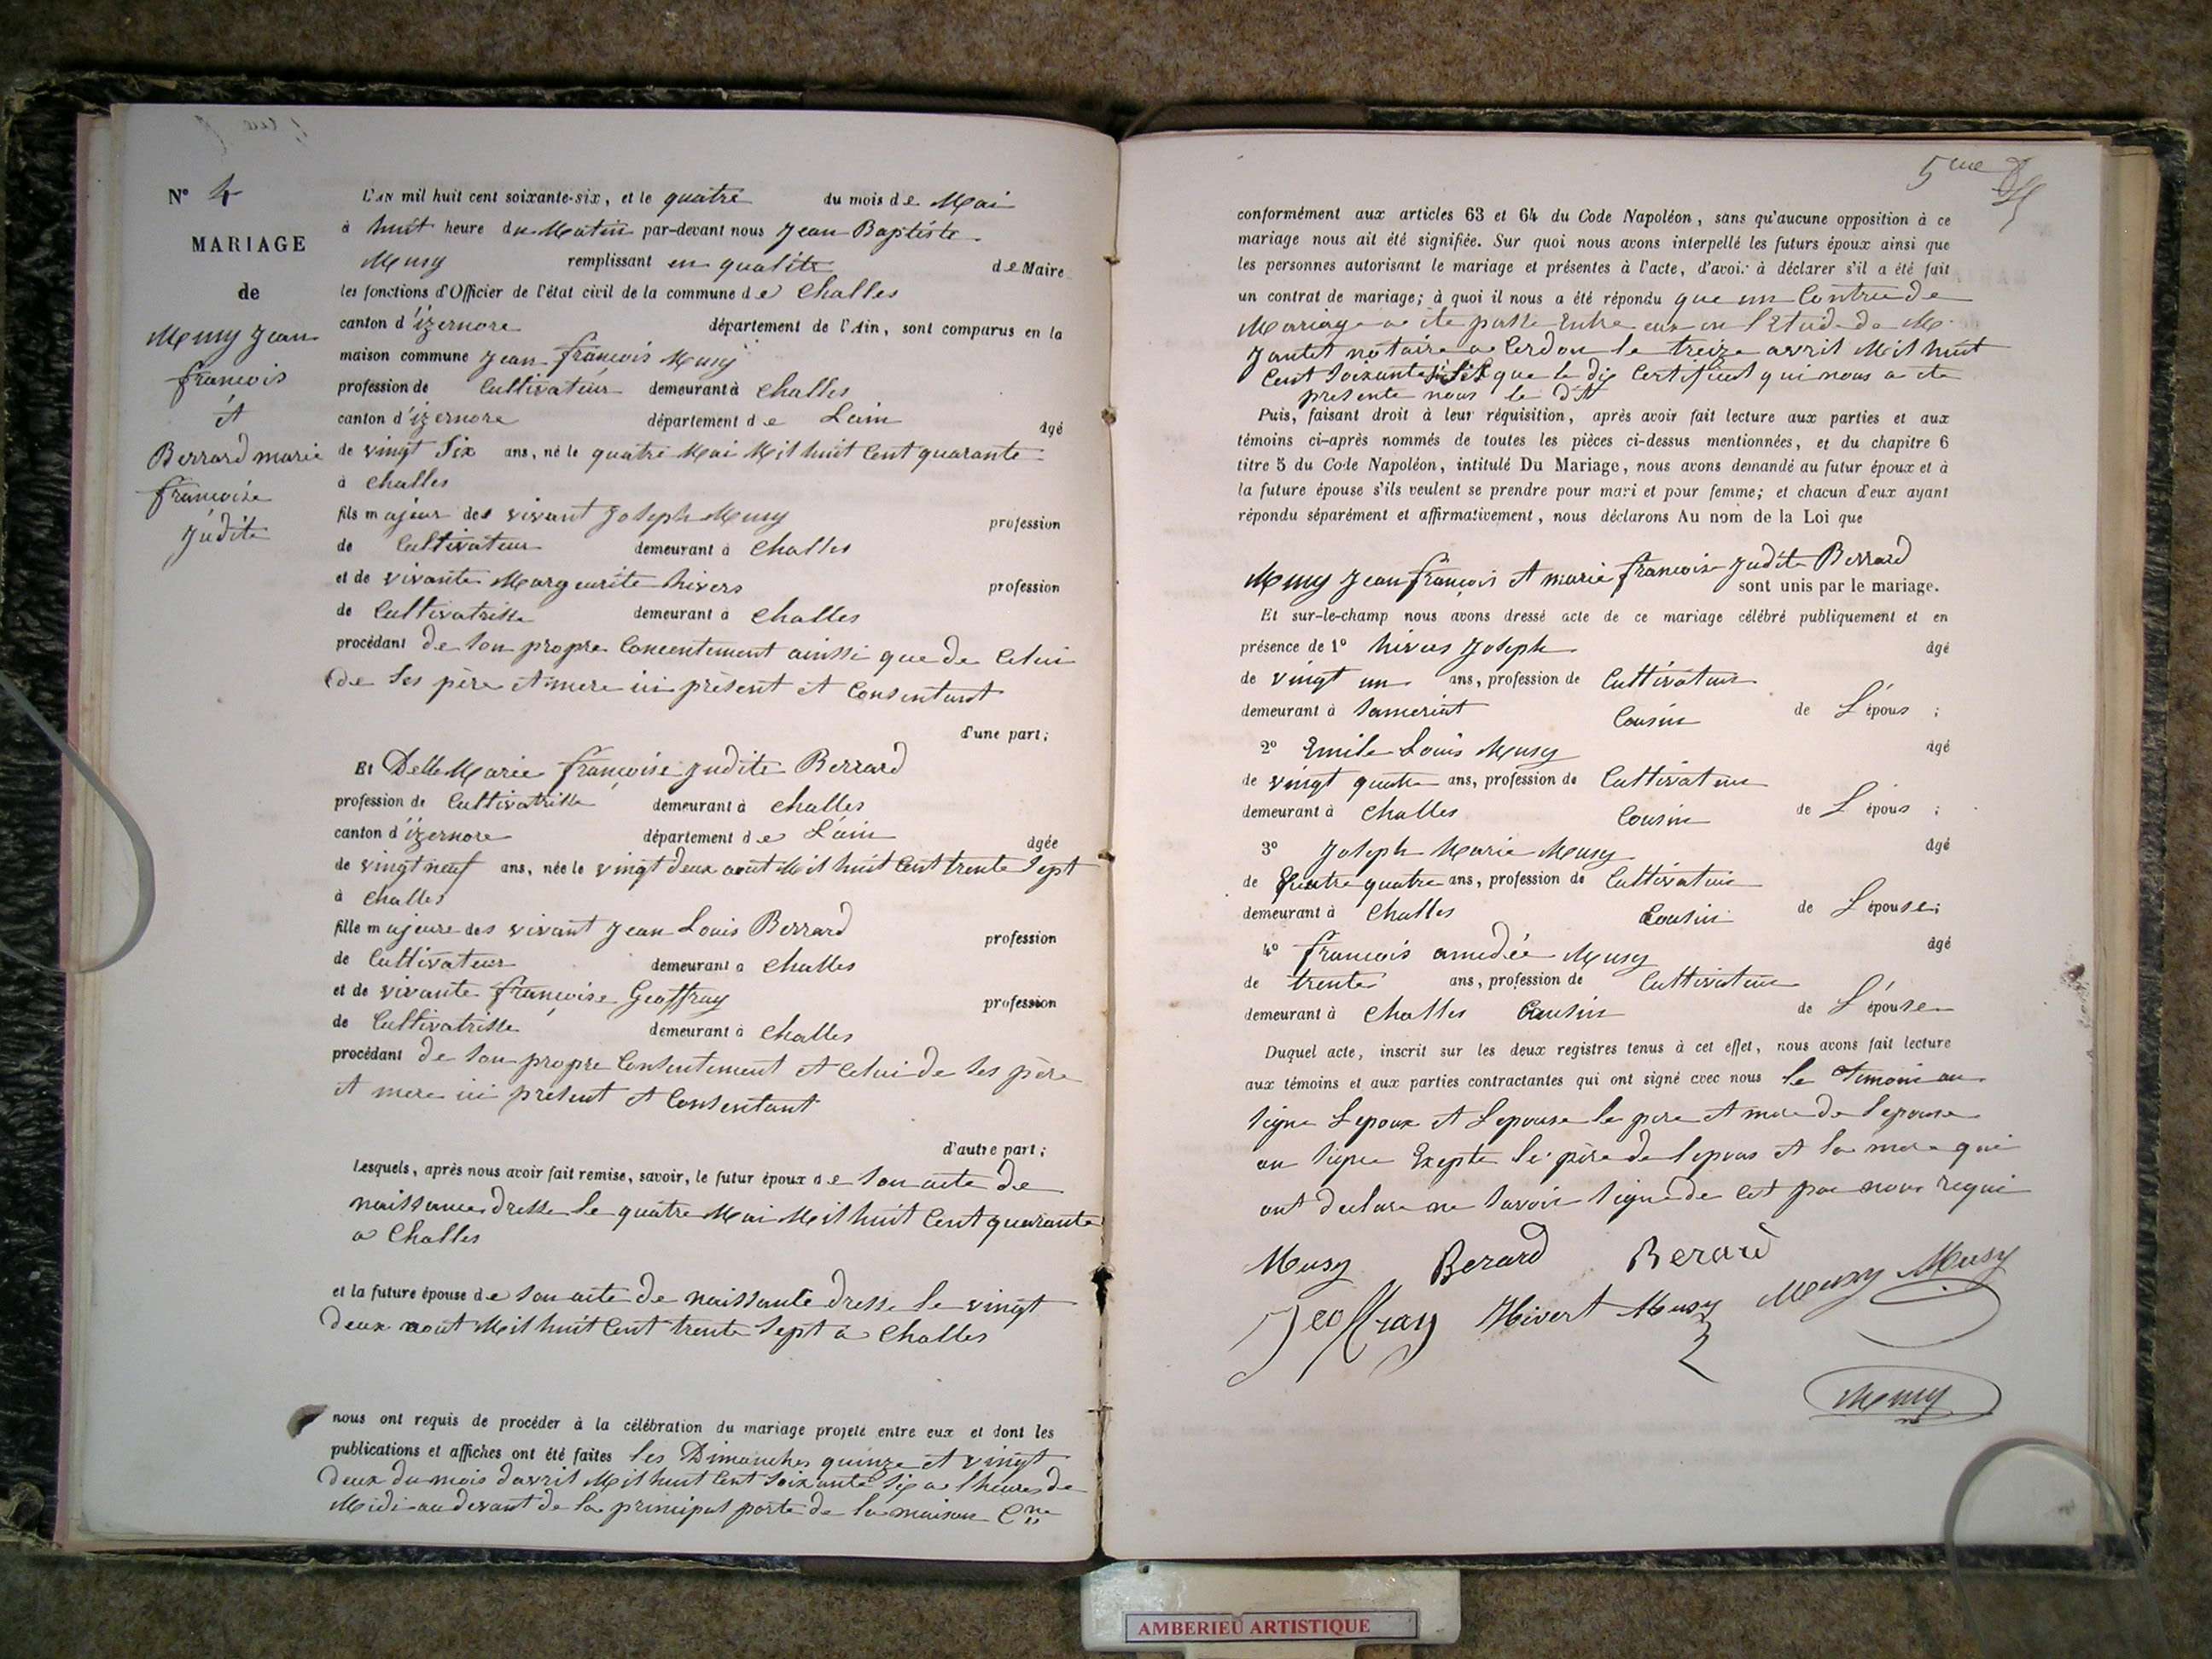 N° 4
MARIAGE
de
Musy Jean
francois
et
Berrard marie
francoise
Judite
L'AN mil huit cent soixante-six, et le quatre du mois de Mai
à huit heure du Matin par-devant nous Jean Baptiste
Musy remplissant en qualite de Maire
les fonctions d'Officier de l'état civil de la commune de Challes
canton d'izernore département de l'Ain, sont comparus en la
maison commune Jean françois Musy
profession de Cultivateur demeurant à Challes
canton d'izernore département de Lain âgé
de vingt Six ans, né le quatre Mai Mil huit Cent quarante
à Challes
fils majeur des vivant Joseph Musy profession
de Cultivateur demeurant à Challes
et de vivante Marguerite hivers profession
de Cultivatrisse demeurant à Challes
procédant de son propre Concentement ainssi que de Celui
de Ses père et mere ici présent et Consentant
d'une part;
Et Delle Marie françoise Judite Berrard
profession de Cultivatrisse demeurant à Challes
canton d'izernore département de L'ain âgée
de vingt neuf ans, née le vingt deux août Mil huit Cent trente Sept
à Challes
fille majeure des vivant Jean Louis Berrard profession
de Cultivateur demeurant a Challes
et de vivante françoise Geoffray profession
de Cultivatrisse demeurant à Challes
procédant de Son propre Consentement et Celui de Ses père
et mere ici présent et Consentant
d'autre part;
Lesquels, après nous avoir fait remise, savoir, le futur époux de Son acte de
naissance dresse le quatre Mai Mil huit Cent quarante
a Challes
et la future épouse de Son acte de naissante dresse le vingt
deux aout Mil huit Cent trente Sept a Challes
nous ont requis de procéder à la célébration du mariage projeté entre eux et dont les
publications et affiches ont été faites les Dimanches quinze et vingt
deux du mois davril Mil huit Cent Soixante Six a lheures de
Midi au devant de la principal porte de la maison Cne
5me
conformément aux articles 63 et 64 du Code Napoléon, sans qu'aucune opposition à ce
mariage nous ait été signifiée. Sur quoi nous avons interpellé les futurs époux ainsi que
les personnes autorisant le mariage et présentes à l'acte, d'avoir à déclarer s'il a été fait
un contrat de mariage; à quoi il nous a été répondu que un Contrude
Mariage a ete passe Entre eux en l'Etude de M.
Jantet notaire a Cerdon le treize avril Mil huit
Cent Soixante Six que le dis Certificat qui nous a ete
presente nous le dit
Puis, faisant droit à leur réquisition, après avoir fait lecture aux parties et aux
témoins ci-après nommés de toutes les pièces ci-dessus mentionnées, et du chapitre 6
titre 5 du Code Napoléon, intitulé Du Mariage, nous avons demandé au futur époux et à
la future épouse s'ils veulent se prendre pour mari et pour femme; et chacun d'eux ayant
répondu séparément et affirmativement, nous déclarons Au nom de la Loi que
Musy Jean françois et marie francoise Judite Berrard
sont unis par le mariage.
Et sur-le-champ nous avons dressé acte de ce mariage célébré publiquement et en
présence de 1° hivers Joseph âgé
de vingt un ans, profession de Cultivateur
demeurant à Samériat Cousin de L'épous;
2° Emile Louis Musy âgé
de vingt quatre ans, profession de Cultivateur
demeurant à Challes Cousin de L'épous;
3° Joseph Marie Musy âgé
de trentre quatre ans, profession de Cultivateur
demeurant à Challes Cousin de L'épouse;
4° francois amedée Musy âgé
de trente ans, profession de Cultivateur
demeurant à Challes Cousin de L'épouse
Duquel acte, inscrit sur les deux registres tenus à cet effet, nous avons fait lecture
aux témoins et aux parties contractantes qui ont signé avec nous le Temoin on
Signe Lepoux et Lepouse le pere et mere de lepouse
on Signe Exepte le père de lepous et la mere qui
ont declare ne Savoir Signe de Cet par nous requi
Musy Berard Berard
Geoffray Hivert Musy Musy Musy
Musy
AMBERIEU ARTISTIQUE